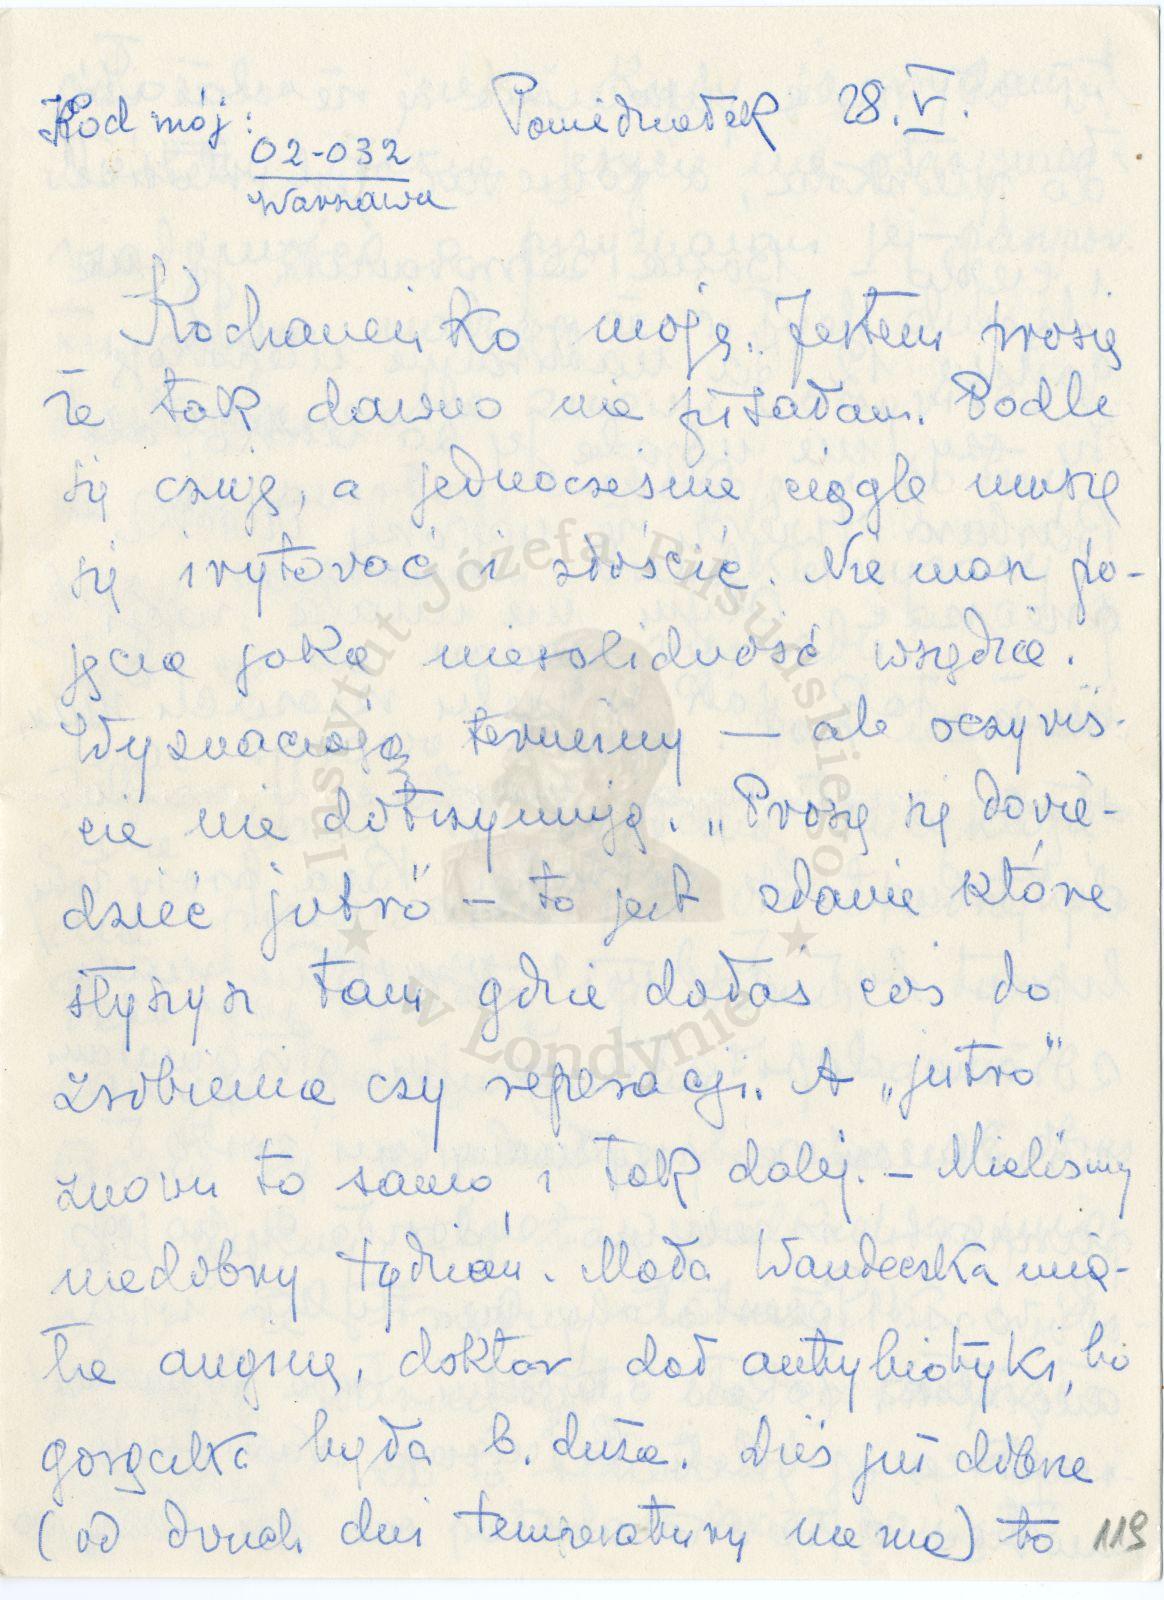 Kod mój: Poniedziałek 28.V.
02-032
Warszawa
Kochaneńko moja. Jestem prosię
że tak dawno nie pisałam. Podle
się czuję, a jednocześnie ciągle muszę
się irytować i złościć. Nie masz po-
jęcia jaka niesolidność wszędzie.
Wyznaczają terminy — ale oczywiś-
cie nie dotrzymują. „Proszę się dowie-
dzieć jutro" — to jest zdanie które
słyszysz tam gdzie dałaś coś do
zrobienia czy reperacji. A „jutro"
znowu to samo i tak dalej. — Mieliśmy
niedobry tydzień. Mała Wandeczka mia-
ła anginę, doktor dał antybiotyki, bo
gorączka była b. duża. Dziś już dobrze
(od dwuch dni temperatury nie ma) to
119
Instytut Józefa Piłsudskiego
w Londynie